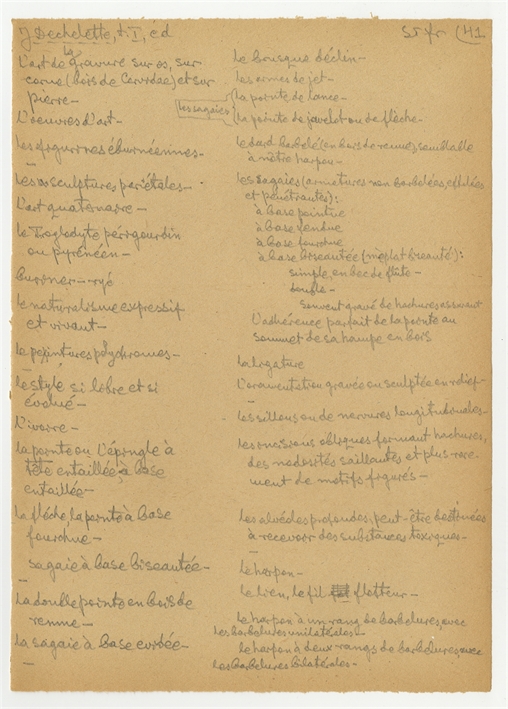 J Dechelette, t. I, c.d
55 fr (41
L'art de la gravure sur os, sur
corne (bois de Cervidae) et sur
pierre—
L'oeuvres d'art—
Les figurines éburnéennes—
Les sculptures pariétales—
L'art quaternaire—
Le Troglodyte périgourdin
ou pyrénéen—
buriner— —ré
Le naturalisme expressif
et vivant—
Le peintures polychromes—
Le style si libre et si
évolué—
L'ivoire—
La pointe ou l'épingle à
tête entaillée, à base
entaillée—
La flèche, la pointe à base
fourchue—
sagaie à base biseautée—
La double pointe en bois de
renne—
La sagaie à base evidée—
Le brusque déclin—
Les armes de jet—
les sagaies
La pointe de lance—
La pointe de javelot ou de flèche—
Le dard barbelé (en bois de renne), semblable
à nôtre harpon—
Les sagaies (armatures non barbelées, effilées
et pénétrantes):
à base pointue
à base fendue
à base fourchue
à base biseautée (méplat biseauté):
simple, en bec de flûte—
double—
souvent gravé de hachures assurant
L'adhérence parfait de la pointe au
sommet de sa hampe en bois
La ligature
L'ornementation gravée ou sculptée en relief—
Les sillons ou de nervures longitudinales—
Les incisions obliques formant hachures,
des nodosités saillantes et plus rare-
ment de motifs figurés—
Les alvéoles profondes, peut-être destinées
à recevoir des substances toxiques—
Le harpon—
Le lien, le fil flotteur—
Le harpon à un rang de barbelures, avec
Les barbelures unilatérales—
Le harpon à deux rangs de barbelures, avec
Les barbelures bilatérales—